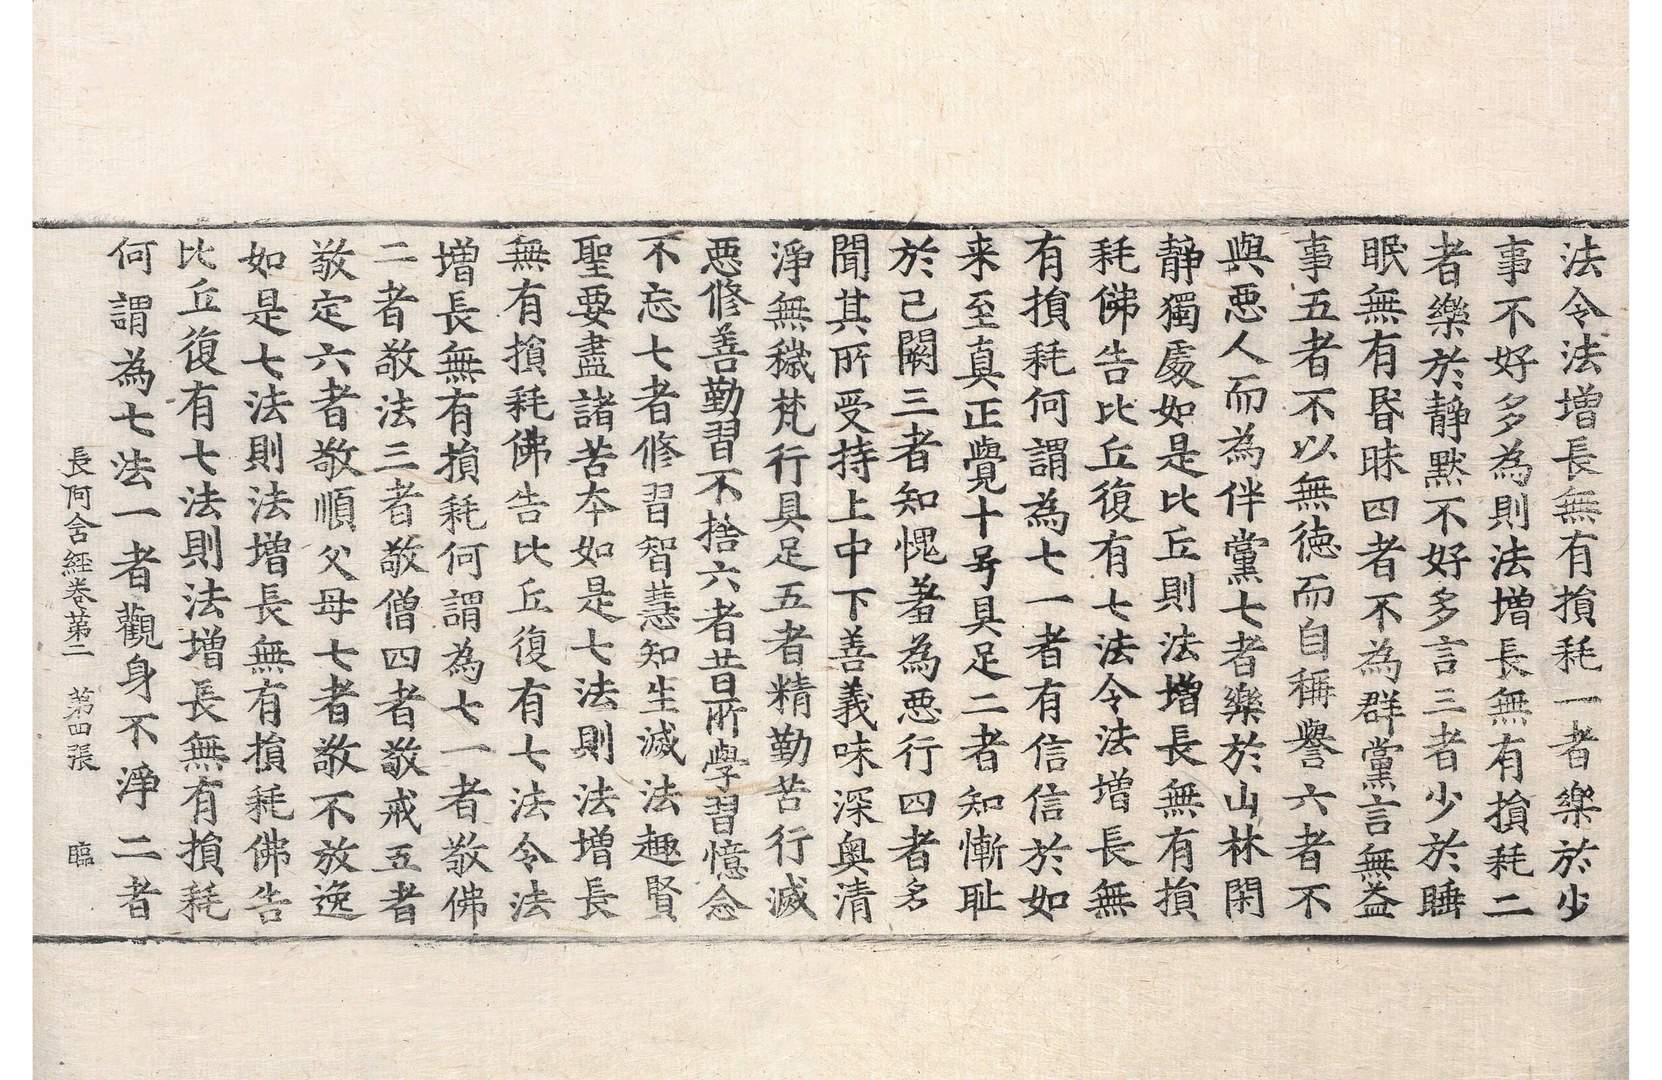 法令法增長無有損耗一者樂於少
事不好多為則法增長無有損耗二
者樂於静默不好多言三者少於睡
眠無有昏昧四者不為群黨言無益
事五者不以無德而自稱譽六者不
與惡人而為伴黨七者樂於山林閑
静獨處如是比丘則法增長無有損
耗佛告比丘復有七法令法增長無
有損耗何謂為七一者有信信於如
来至真正覺十号具足二者知慚耻
於己闕三者知愧羞為惡行四者多
聞其所受持上中下善義味深奥清
淨無穢梵行具足五者精勤苦行滅
惡修善勤習不捨六者昔所學習憶念
不忘七者修習智慧知生滅法趣賢
聖要盡諸苦本如是七法則法增長
無有損耗佛告比丘復有七法令法
增長無有損耗何謂為七一者敬佛
二者敬法三者敬僧四者敬戒五者
敬定六者敬順父母七者敬不放逸
如是七法則法增長無有損耗佛告
比丘復有七法則法增長無有損耗
何謂為七法一者觀身不淨二者
長阿含經卷第二 第四張 臨